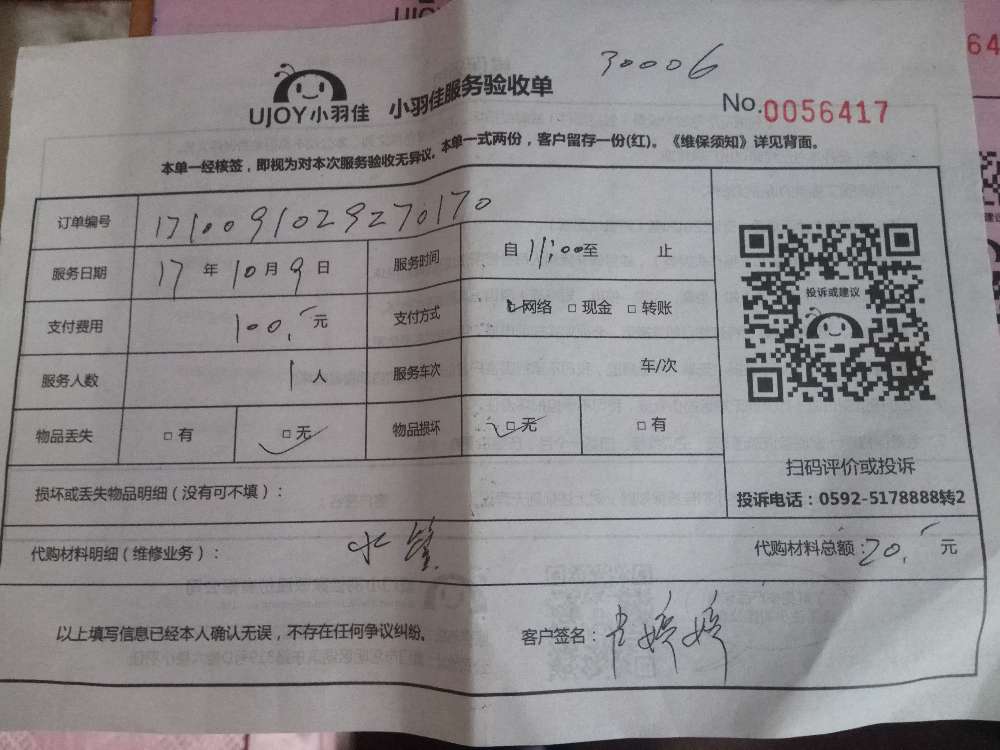 30006
UJOY小羽佳 小羽佳服务验收单
No.0056417
本单一经核签，即视为对本次服务验收无异议。本单一式两份，客户留存一份(红)。《维保须知》详见背面。
订单编号 1710091029270170
服务日期 17 年 10 月 9 日 服务时间 自 11:00 至 止
支付费用 100. 元 支付方式 □网络 □现金 □转账
服务人数 1 人 服务车次 车/次
物品丢失 □有 □无 物品损坏 □无 □有
投诉或建议
扫码评价或投诉
投诉电话：0592-5178888转2
损坏或丢失物品明细（没有可不填）：
代购材料明细（维修业务）： 水管 代购材料总额：20. 元
以上填写信息已经本人确认无误，不存在任何争议纠纷。 客户签名： 婷婷